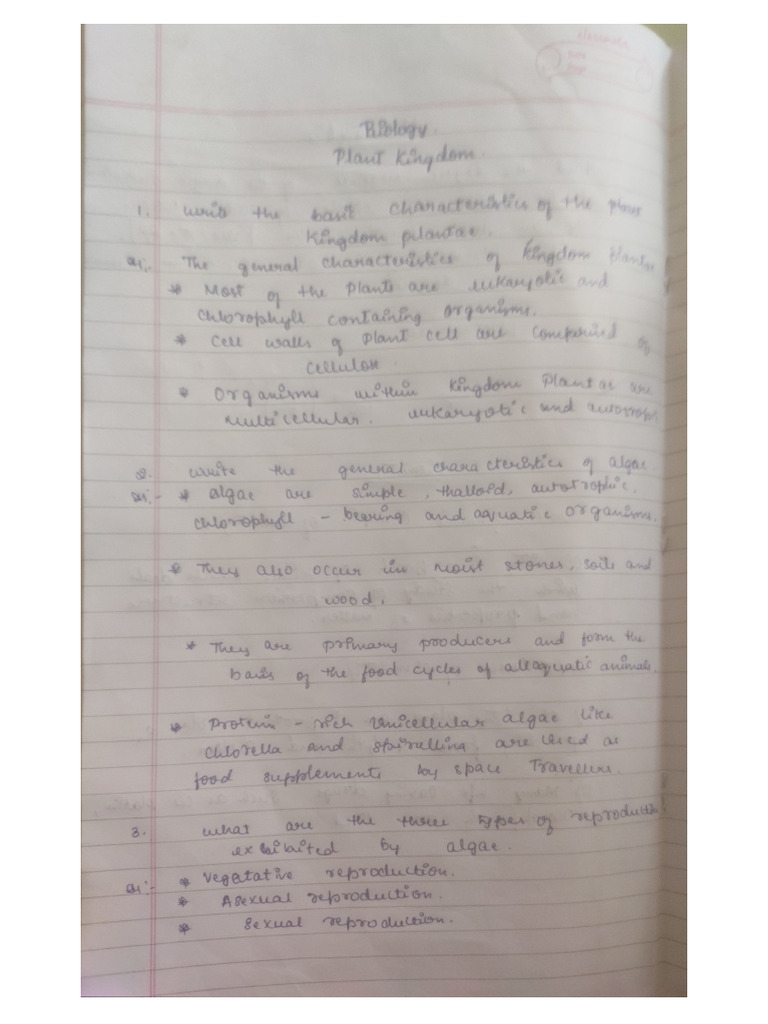 Biology
Plant Kingdom.
1. write the basic characteristics of the
Kingdom plantae.
The general characteristics of Kingdom Plantae
* Most of the Plants are eukaryotic and
chlorophyll containing organisms.
* Cell walls of Plant cell are comprised of
cellulose.
* Organisms within Kingdom Plantae are
Multicellular. eukaryotic and
2. write the general characteristics of algae
* algae are simple, thalloid, autotrophic,
chlorophyll - bearing and aquatic organisms.
* They also occur in moist stones, soils and
wood.
* They are primary producers and form the
basis of the food cycles of all aquatic animals.
* Protein - rich Unicellular algae like
chlorella and are used as
food supplements by space Travellers.
3. what are the three types of reproduction
by algae.
* Vegetative reproduction.
* Asexual reproduction.
* sexual reproduction.